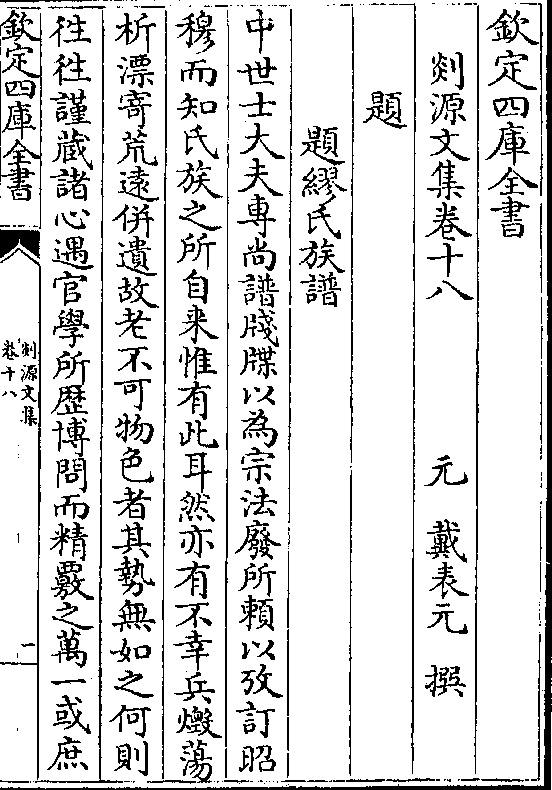 欽定四庫全書
剡源文集卷十八　元　戴表元　撰
題
題繆氏族譜
中世士大夫專尚譜牋牒以為宗法廢所頼以攷訂昭
穆而知氏族之所自来惟有此耳然亦有不幸兵燬蕩
析漂寄荒遠併遺故老不可物色者其勢無如之何則
徃徃謹蔵諸心遇官學所歴博問而精覈之萬一或庶
欽定四庫全書
剡源文集
卷十八
一